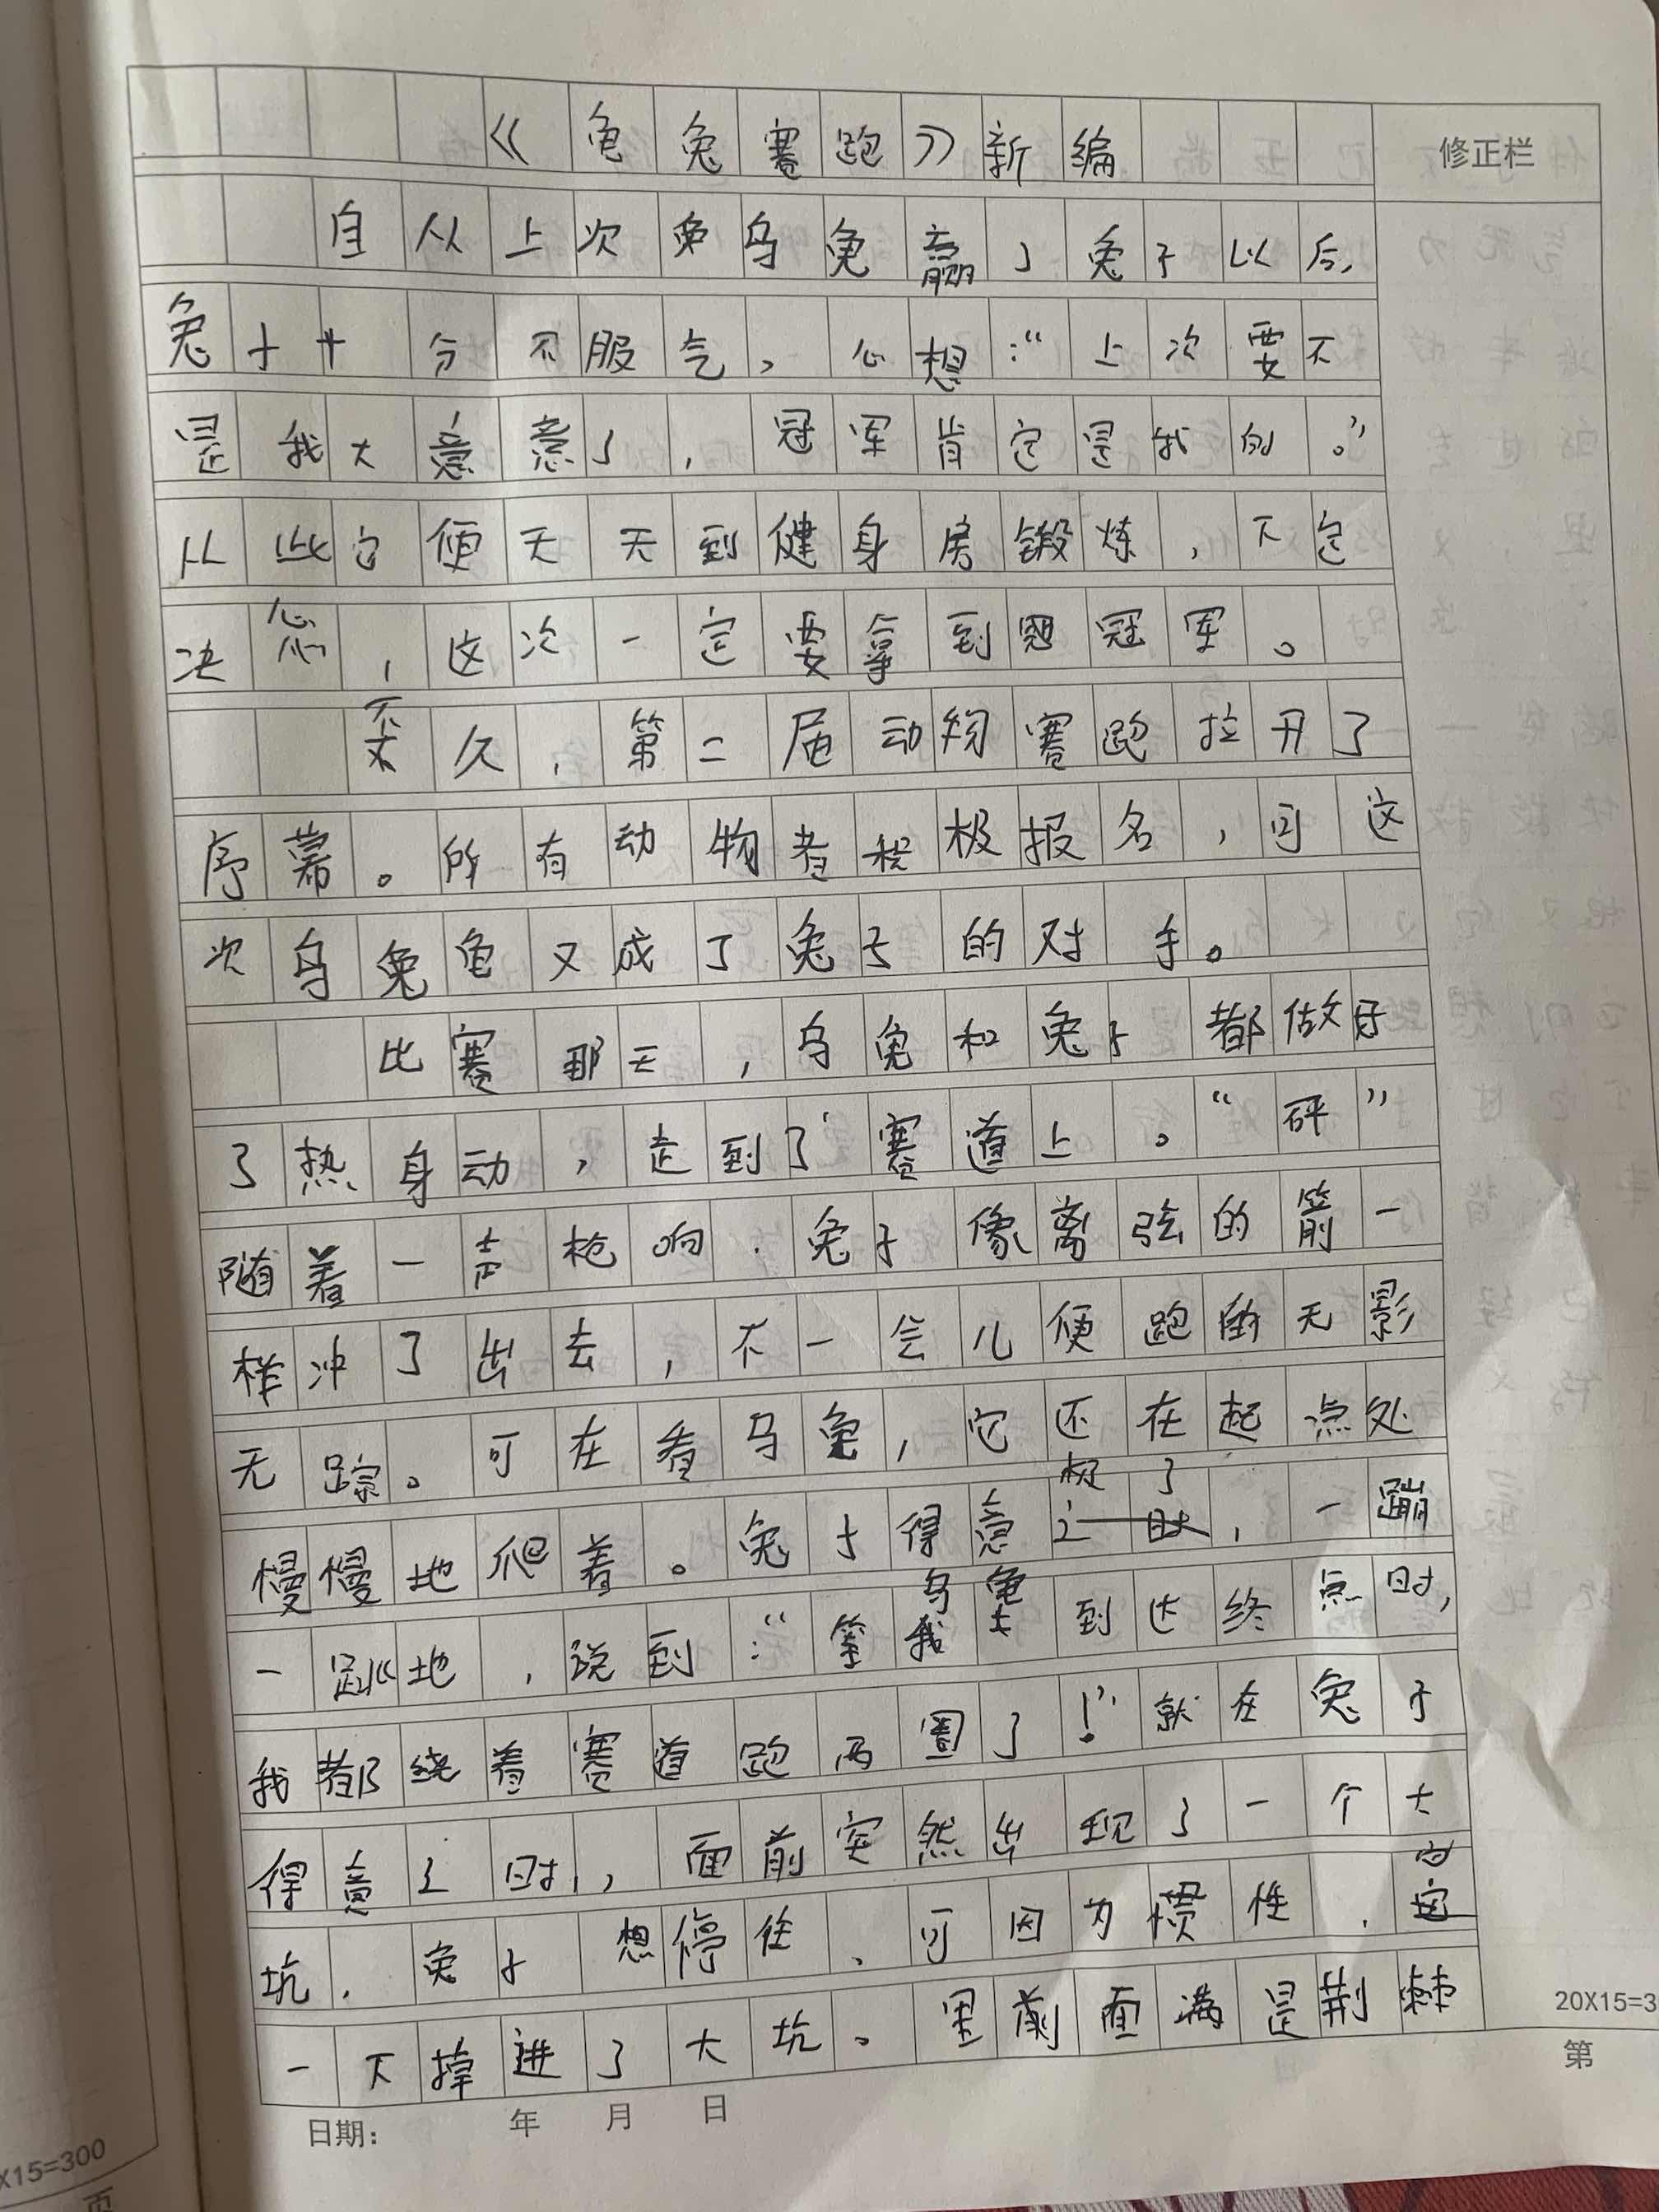 《龟兔赛跑》新编
修正栏
自从上次乌龟赢了兔子以后,
兔子十分不服气，心想:“上次要不
是我大意了，冠军肯定是我的。”
从此它便天天到健身房锻炼，下定
决心，这次一定要拿到冠军。
不久，第二届动物赛跑拉开了
序幕。所有动物者积极报名，可这
次乌龟又成了兔子的对手。
比赛那天，乌龟和兔子都做好
了热身动，走到了赛道上。“砰”
随着一声枪响.兔子像离弦的箭一
样冲了出去，不一会儿便跑的无影
无踪。可在看乌龟，它还在起点处
慢慢地爬着。兔子得意极了，一蹦
一跳地，说到:“等乌龟到达终点时，
我都绕着赛道跑两圈了!”就在兔子
得意之时，面前突然出现了一个大
坑，兔子想停住、可因为惯性，
一下掉进了大坑。里面满是荆棘
20X15=3
第
日期: 年 月 日
X15=300
页